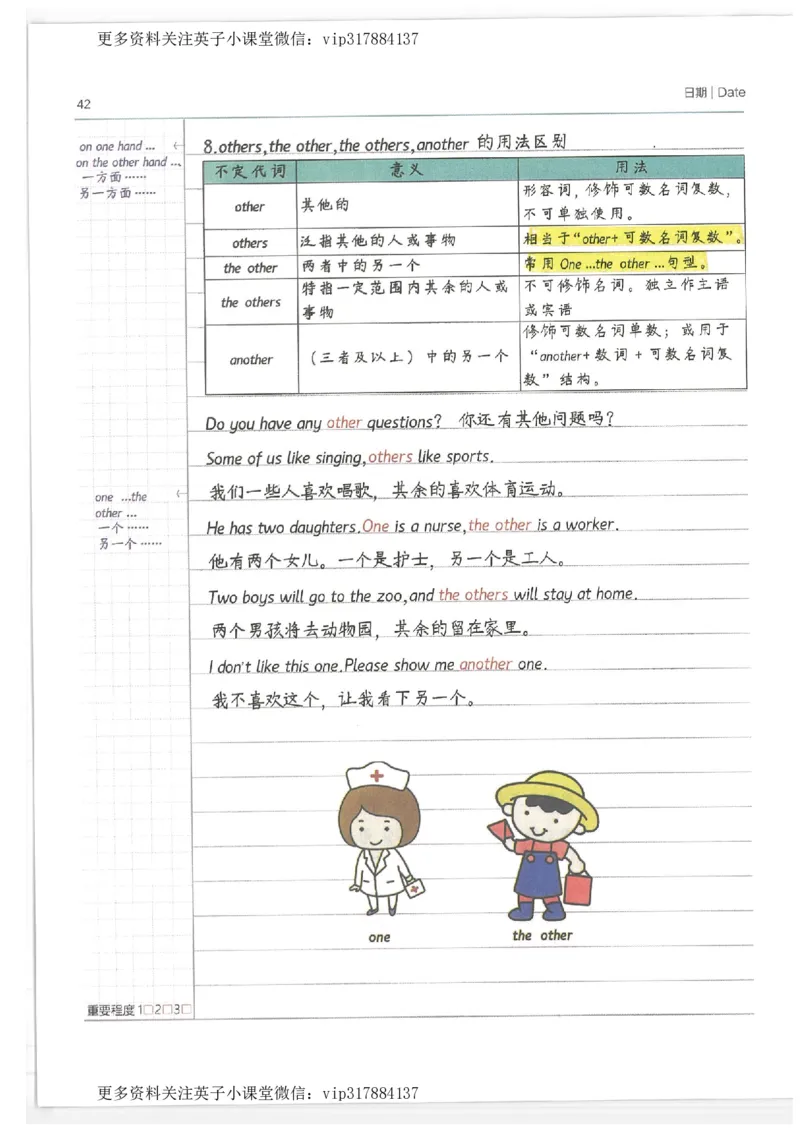 更多资料关注英子小课堂微信：vip317884137
日期 | Date
42
on one hand ...
on the other hand ...
一方面……
另一方面……
8.others,the other,the others,another 的用法区别
不定代词 意义 用法
other 其他的 形容词，修饰可数名词复数，
不可单独使用。
others 泛指其他的人或事物 相当于“other+可数名词复数”。
the other 两者中的另一个 常用 One ...the other ...句型。
the others 特指一定范围内其余的人或
事物 不可修饰名词。独立作主语
或宾语
another （三者及以上）中的另一个 修饰可数名词单数；或用于
“another+数词+可数名词复
数”结构。
Do you have any other questions? 你还有其他问题吗？
Some of us like singing,others like sports.
我们一些人喜欢唱歌，其余的喜欢体育运动。
one ...the
other ...
一个……
另一个……
He has two daughters.One is a nurse,the other is a worker.
他有两个女儿。一个是护士，另一个是工人。
Two boys will go to the zoo,and the others will stay at home.
两个男孩将去动物园，其余的留在家里。
I don't like this one.Please show me another one.
我不喜欢这个，让我看下另一个。
one
the other
重要程度 1□2□3□
更多资料关注英子小课堂微信：vip317884137